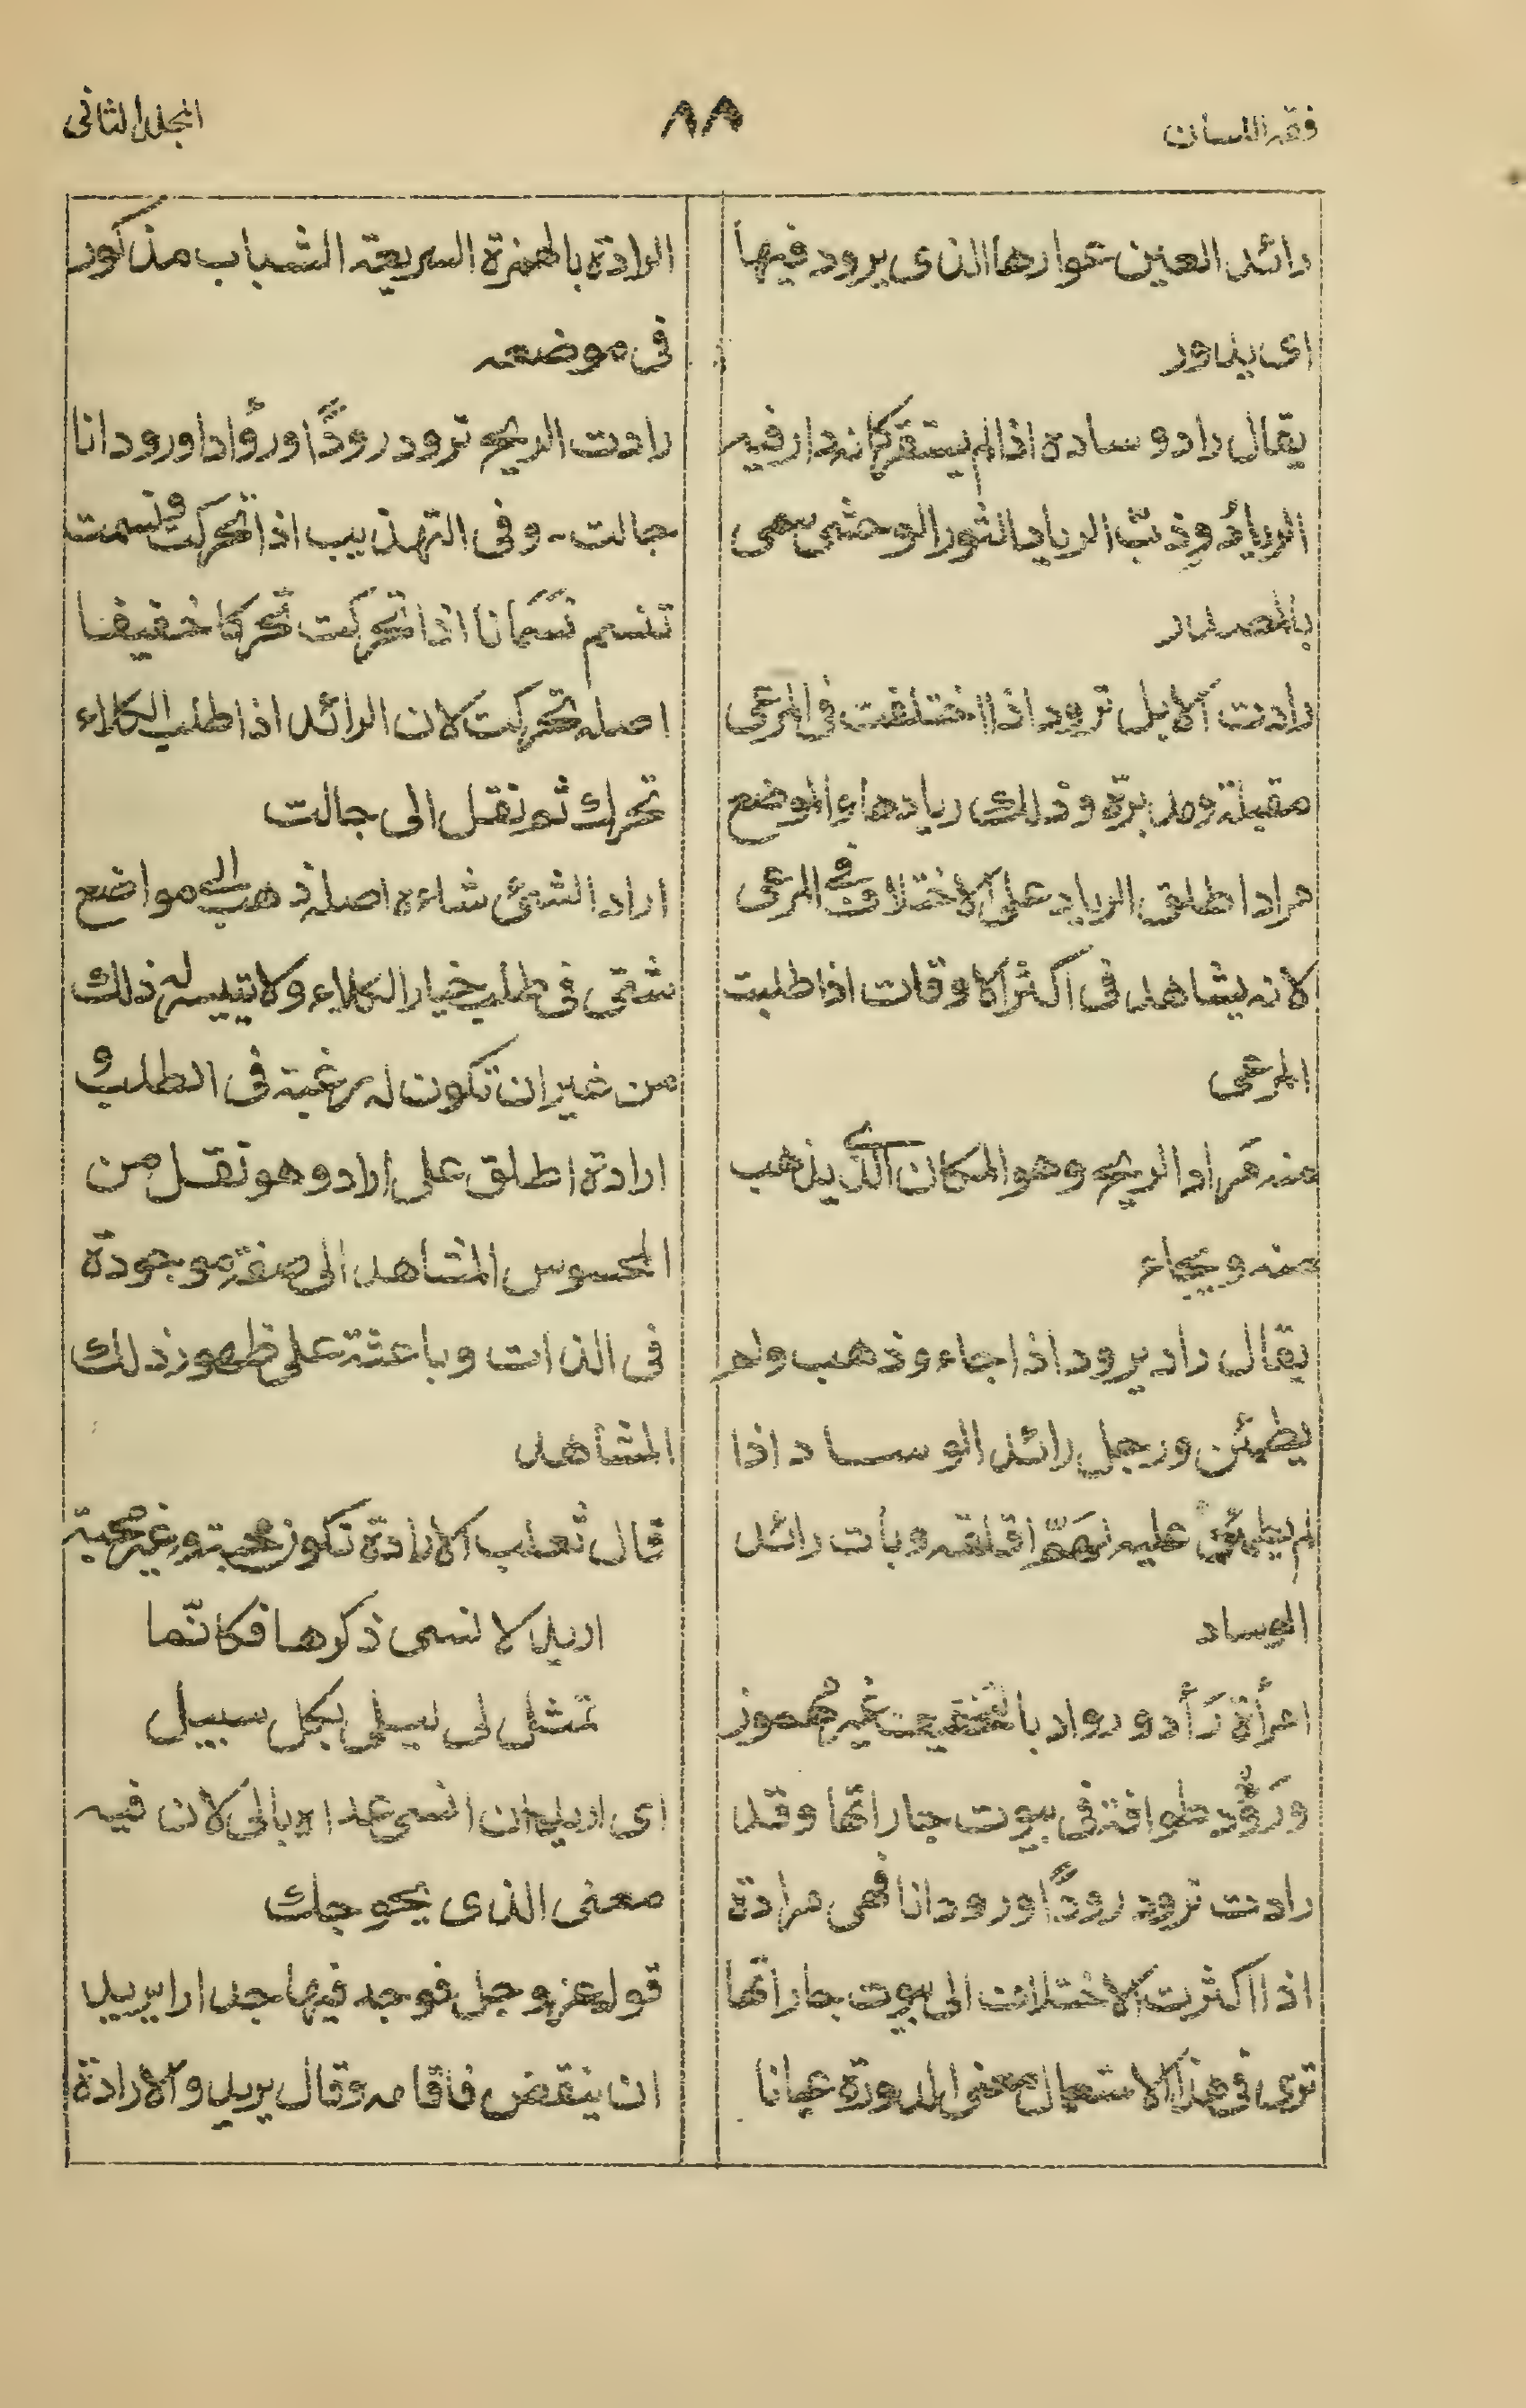 فقه اللسان
٨٨
المجلد الثانى
رائد العين عوارها الذى يرود فيها
اى يدور
يقال راد وساده اذا لم يستقر كانه دار فيه
الريادُ وذبّ الرياد الثور الوحشى سمى
بالمصدر
رادت الابل ترود اذا اختلفت فى المرعى
مقبلة ومدبرّة وذلك ريادها والموضع
مراد اطلق الرياد على الاختلاف فى المرعى
لانه يشاهد فى اكثر الاوقات اذا طلبت
المرعى
منه مَراد الريح وهو المكان الذى يذهب
منه ويجاء
يقال راد يرود اذا جاء وذهب ولم
يطمئن ورجل رائد الوساد اذا
لم يطمئن عليه لهَمّ اقلقه وبات رائد
الوساد
امرأة رَأد ورواد بالتخفيف غير مهموز
ورَؤُود طوافة فى بيوت جاراتها وقد
رادت ترود رودًا ورودانا فهى رادة
اذا اكثرت الاختلاف الى بيوت جاراتها
ترى فى هذا الاستعمال معنى المدورة عيانا
الرادة بالهمزة السريعة الشباب مذكور
فى موضعه
رادت الريح ترود رودًا ورؤُادا ورودانا
جالت - وفى التهذيب اذا تحركت ونسمت
تنسم نَسَمانا اذا تحركت تحركا خفيفا
اصله تحركت لان الرائد اذا طلب الكلاء
تحرك ثم نقل الى جالت
اراد الشئ شاءه اصله ذهب الى مواضع
شتى فى طلب خيار الكلاء ولا يتيسر له ذلك
من غير ان تكون له رغبة فى الطلب و
ارادة اطلق على اراد وهو نقل من
المحسوس المشاهد الى صفة موجودة
فى الذات وباعثة على ظهور ذلك
المشاهد
قال ثعلب الارادة تكون محبة وغير محبة
اريد لانسى ذكرها فكانّما
تمثل لى ليلى بكل سبيل
اى اريد ان انسى عداه بالى لان فيه
معنى الذى يحوجك
قوله عز وجل فوجد فيها جدارا يريد
ان ينقض فاقامه وقال يريد والارادة